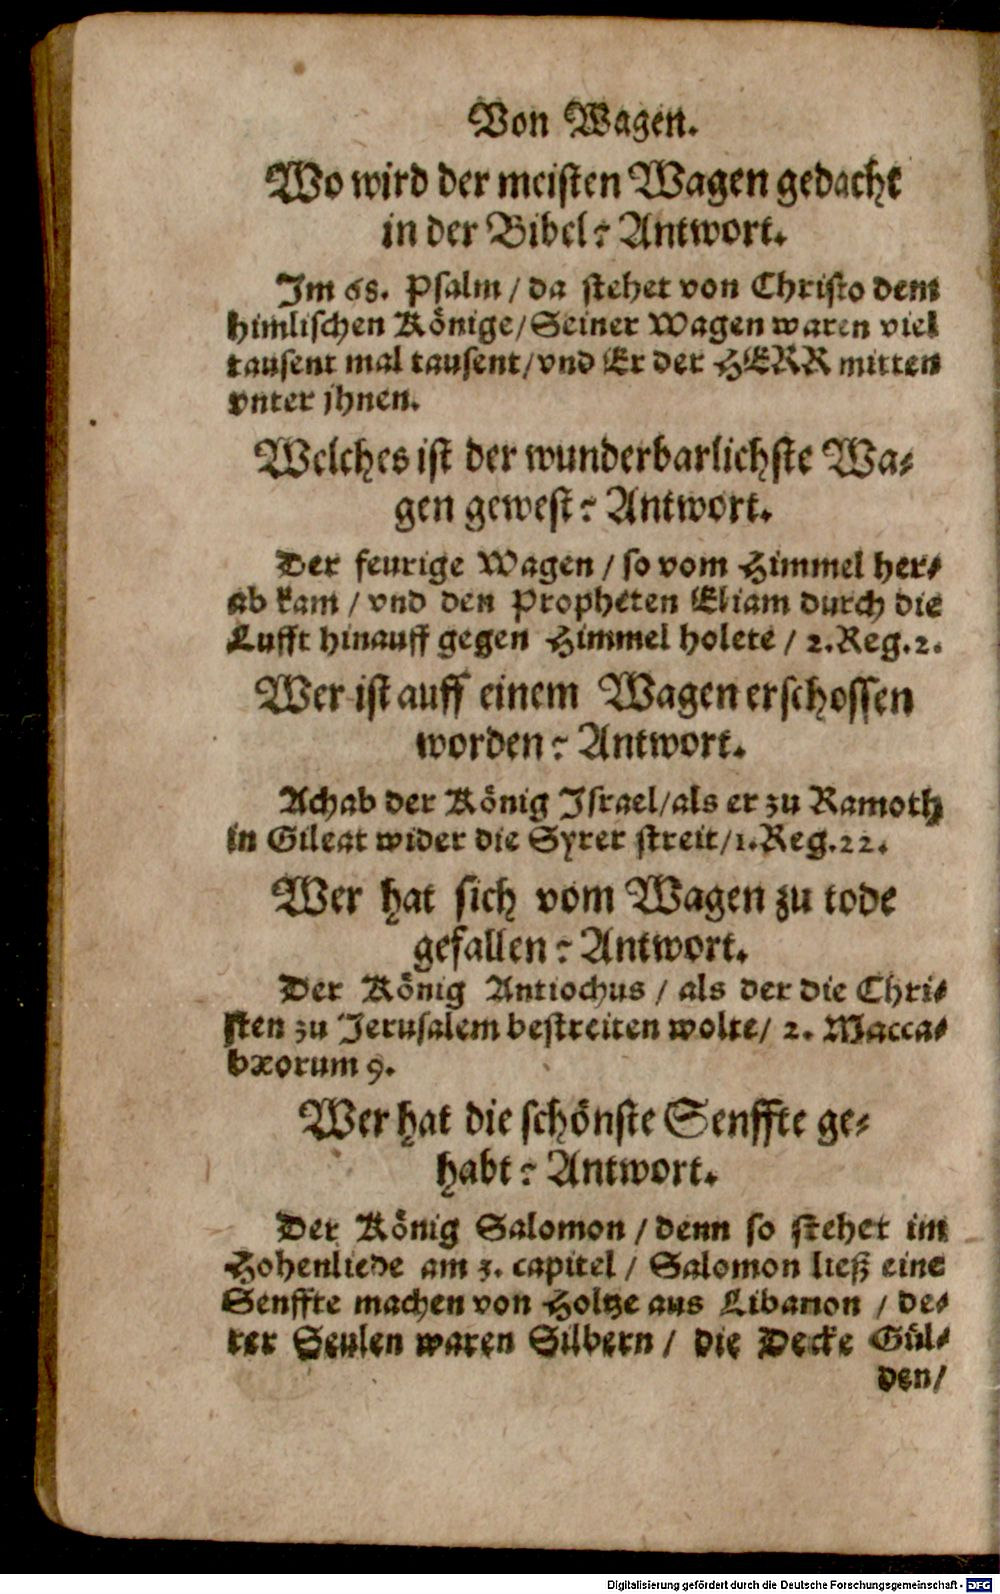 Von Wagen.
Wo wird der meisten Wagen gedacht
in der Bibel? Antwort.
Im 68. Psalm / da stehet von Christo dem
himlischen Könige / Seiner Wagen waren viel
tausent mal tausent / vnd Er der HERR mitten
vnter jhnen.
Welches ist der wunderbarlichste Wa-
gen gewest? Antwort.
Der feurige Wagen / so vom Himmel her-
ab kam / vnd den Propheten Eliam durch die
Lufft hinauff gegen Himmel holete / 2. Reg. 2.
Wer ist auff einem Wagen erschossen
worden? Antwort.
Achab der König Israel / als er zu Ramoth
in Gileat wider die Syrer streit / 1. Reg. 22.
Wer hat sich vom Wagen zu tode
gefallen? Antwort.
Der König Antiochus / als der die Chri-
sten zu Jerusalem bestreiten wolte / 2. Macca-
bæorum 9.
Wer hat die schönste Senffte ge-
habt? Antwort.
Der König Salomon / denn so stehet im
Hohenliede am 3. capitel / Salomon ließ eine
Senffte machen von Holtze aus Libanon / de-
rer Seulen waren Silbern / die Decke Gül-
den /
Digitalisierung gefördert durch die Deutsche Forschungsgemeinschaft - DFG